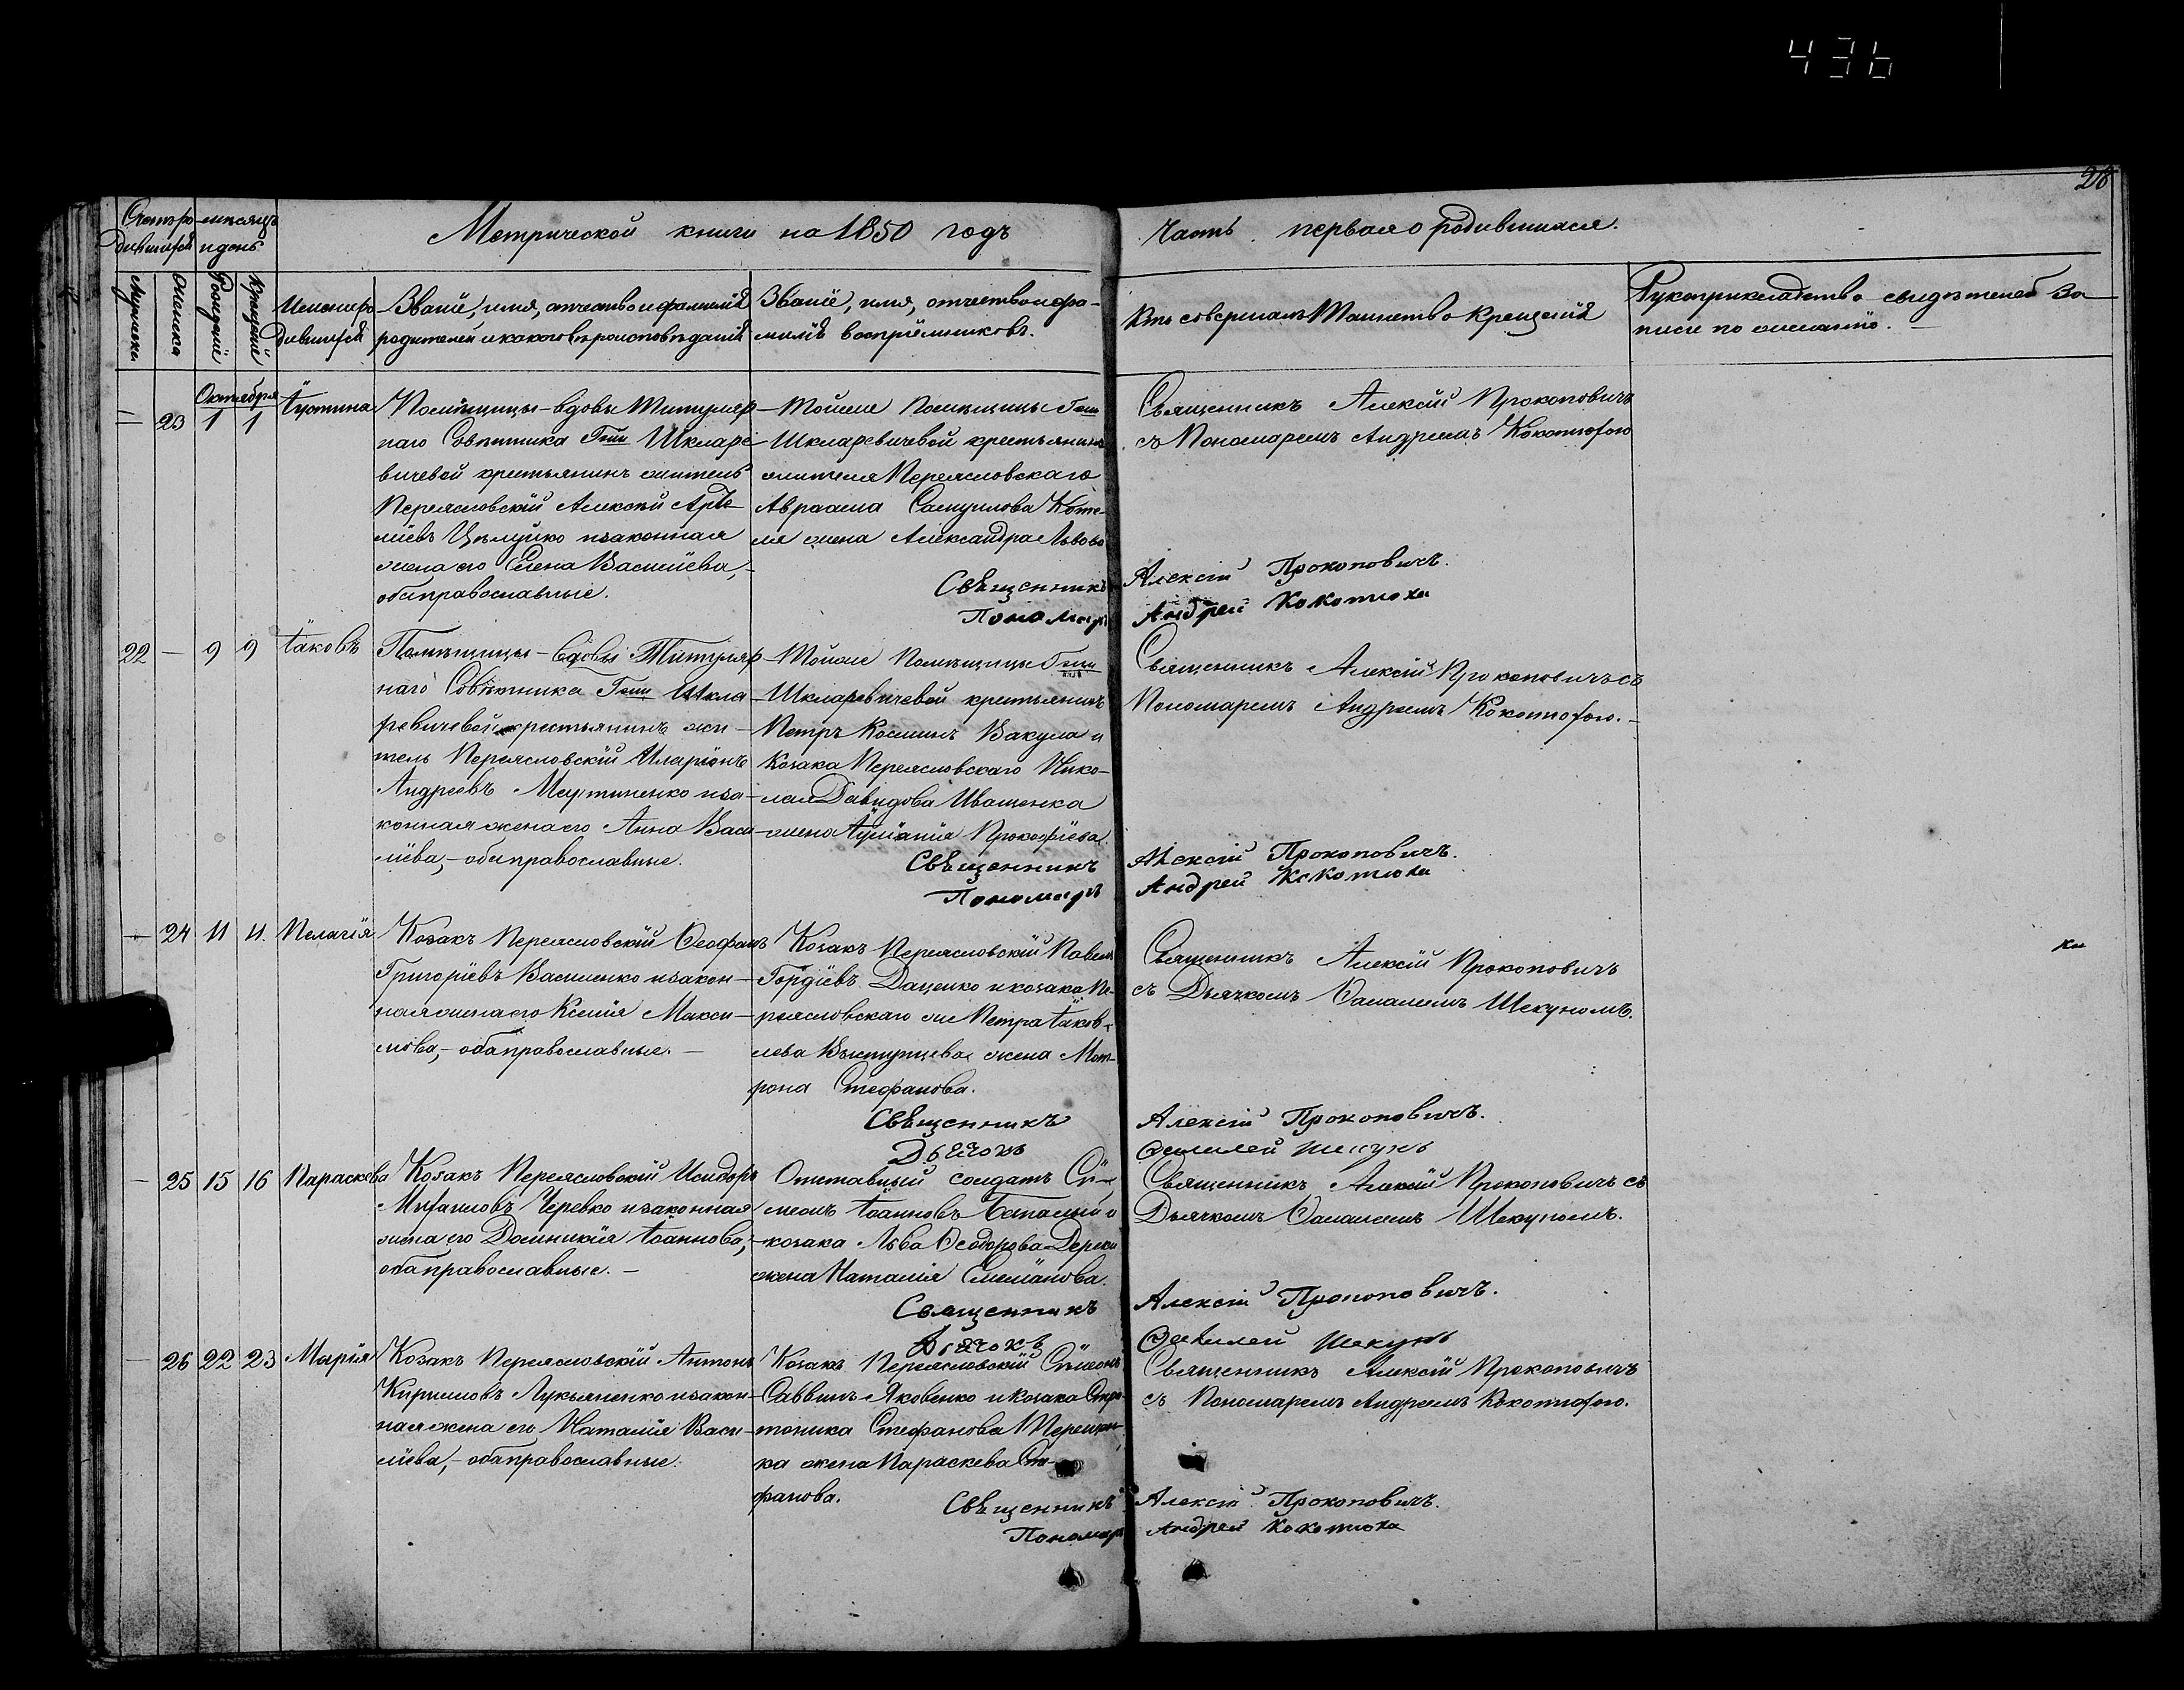 436
28
Счетъ ро- мѣсяцъ
дившихся и день
Метрической книги на 1850 годъ
Часть первая о родившихся.
Мужеска
Женска
Рожденія
Крещенія
Имена ро-
дившихся
Званіе, имя, отчество и фамилія
родителей и какого вѣроисповѣданія
Званіе, имя, отчество и фа-
милія воспріемниковъ.
Кто совершалъ Таинство Крещенія
Рукоприкладство свидѣтелей за-
писи по желанію. —
Октября
— 23 1 1
Іустина
Помѣщицы - вдовы Титуляр-
наго Совѣтника Гжи Шкляре-
вичевой крестьянинъ житель
Переясловскій Алексѣй
Цѣлуйко и законная
жена его Елена Василіева, -
оба православные.
Тойже помѣщицы Гжи
Шкляревичевой крестьянина
жителя Переясловскаго
Авраама Самуилова
жена Александра Львова
Священникъ Алексій Прокоповичъ
съ Пономаремъ Андреемъ Кокотюхою
Священникъ Алексій Прокоповичъ.
Пономарь Андрей Кокотюха
22 — 9 9
Іаковъ
Помѣщицы - вдовы Титуляр-
наго Совѣтника Гжи Шкля-
ревичевой крестьянинъ жи-
тель Переясловскій Иларіонъ
Андреевъ Мартиненко и за-
конная жена его Анна Васи-
ліева, - оба православные.
Тойже помѣщицы Гжи
Шкляревичевой крестьянинъ
Петръ Косминъ Вакула и
козака Переясловскаго Нико-
лая Давидова Иващенка
жена Іуліанія Прокофіева.
Священникъ Алексій Прокоповичъ съ
Пономаремъ Андреемъ Кокотюхою. -
Священникъ Алексій Прокоповичъ.
Пономарь Андрей Кокотюха
— 24 11 11.
Пелагія
Козакъ Переясловскій Ѳеофанъ
Григоріевъ Василенко и закон-
ная жена его Ксенія Макси-
мова, - оба православные. —
Козакъ Переясловскій Павелъ
Гордіевъ Даценко и козака Пе-
реясловскаго же Петра Іаков-
лева жена Мот-
рона Стефанова.
Священникъ Алексій Прокоповичъ
съ Дьячкомъ Савалеемъ Шекуномъ.
Священникъ Алексій Прокоповичъ.
Дьячокъ Шекунъ
— 25 15 16
Параскева
Козакъ Переясловскій Исидоръ
Михаиловъ Черевко и законная
жена его Домникія Іоаннова,
оба православные. —
Отставный солдатъ Си-
меонъ Іоанновъ и
козака Льва Ѳеодорова
жена Наталія Емеліанова.
Священникъ Алексій Прокоповичъ съ
Дьячкомъ Савалеемъ Шекуномъ.
Священникъ Алексій Прокоповичъ.
Дьячокъ Шекунъ
— 26 22 23
Марія
Козакъ Переясловскій Антонъ
Кириловъ Лукьяненко и закон-
ная жена его Наталія Васи-
ліева, - оба православные.
Козакъ Переясловскій Симеонъ
Саввинъ Яковенко и козака Стра-
тоника Стефанова
жена Параскева Сте-
фанова.
Священникъ Алексій Прокоповичъ
съ Пономаремъ Андреемъ Кокотюхою.
Священникъ Алексій Прокоповичъ.
Пономарь Андрей Кокотюха